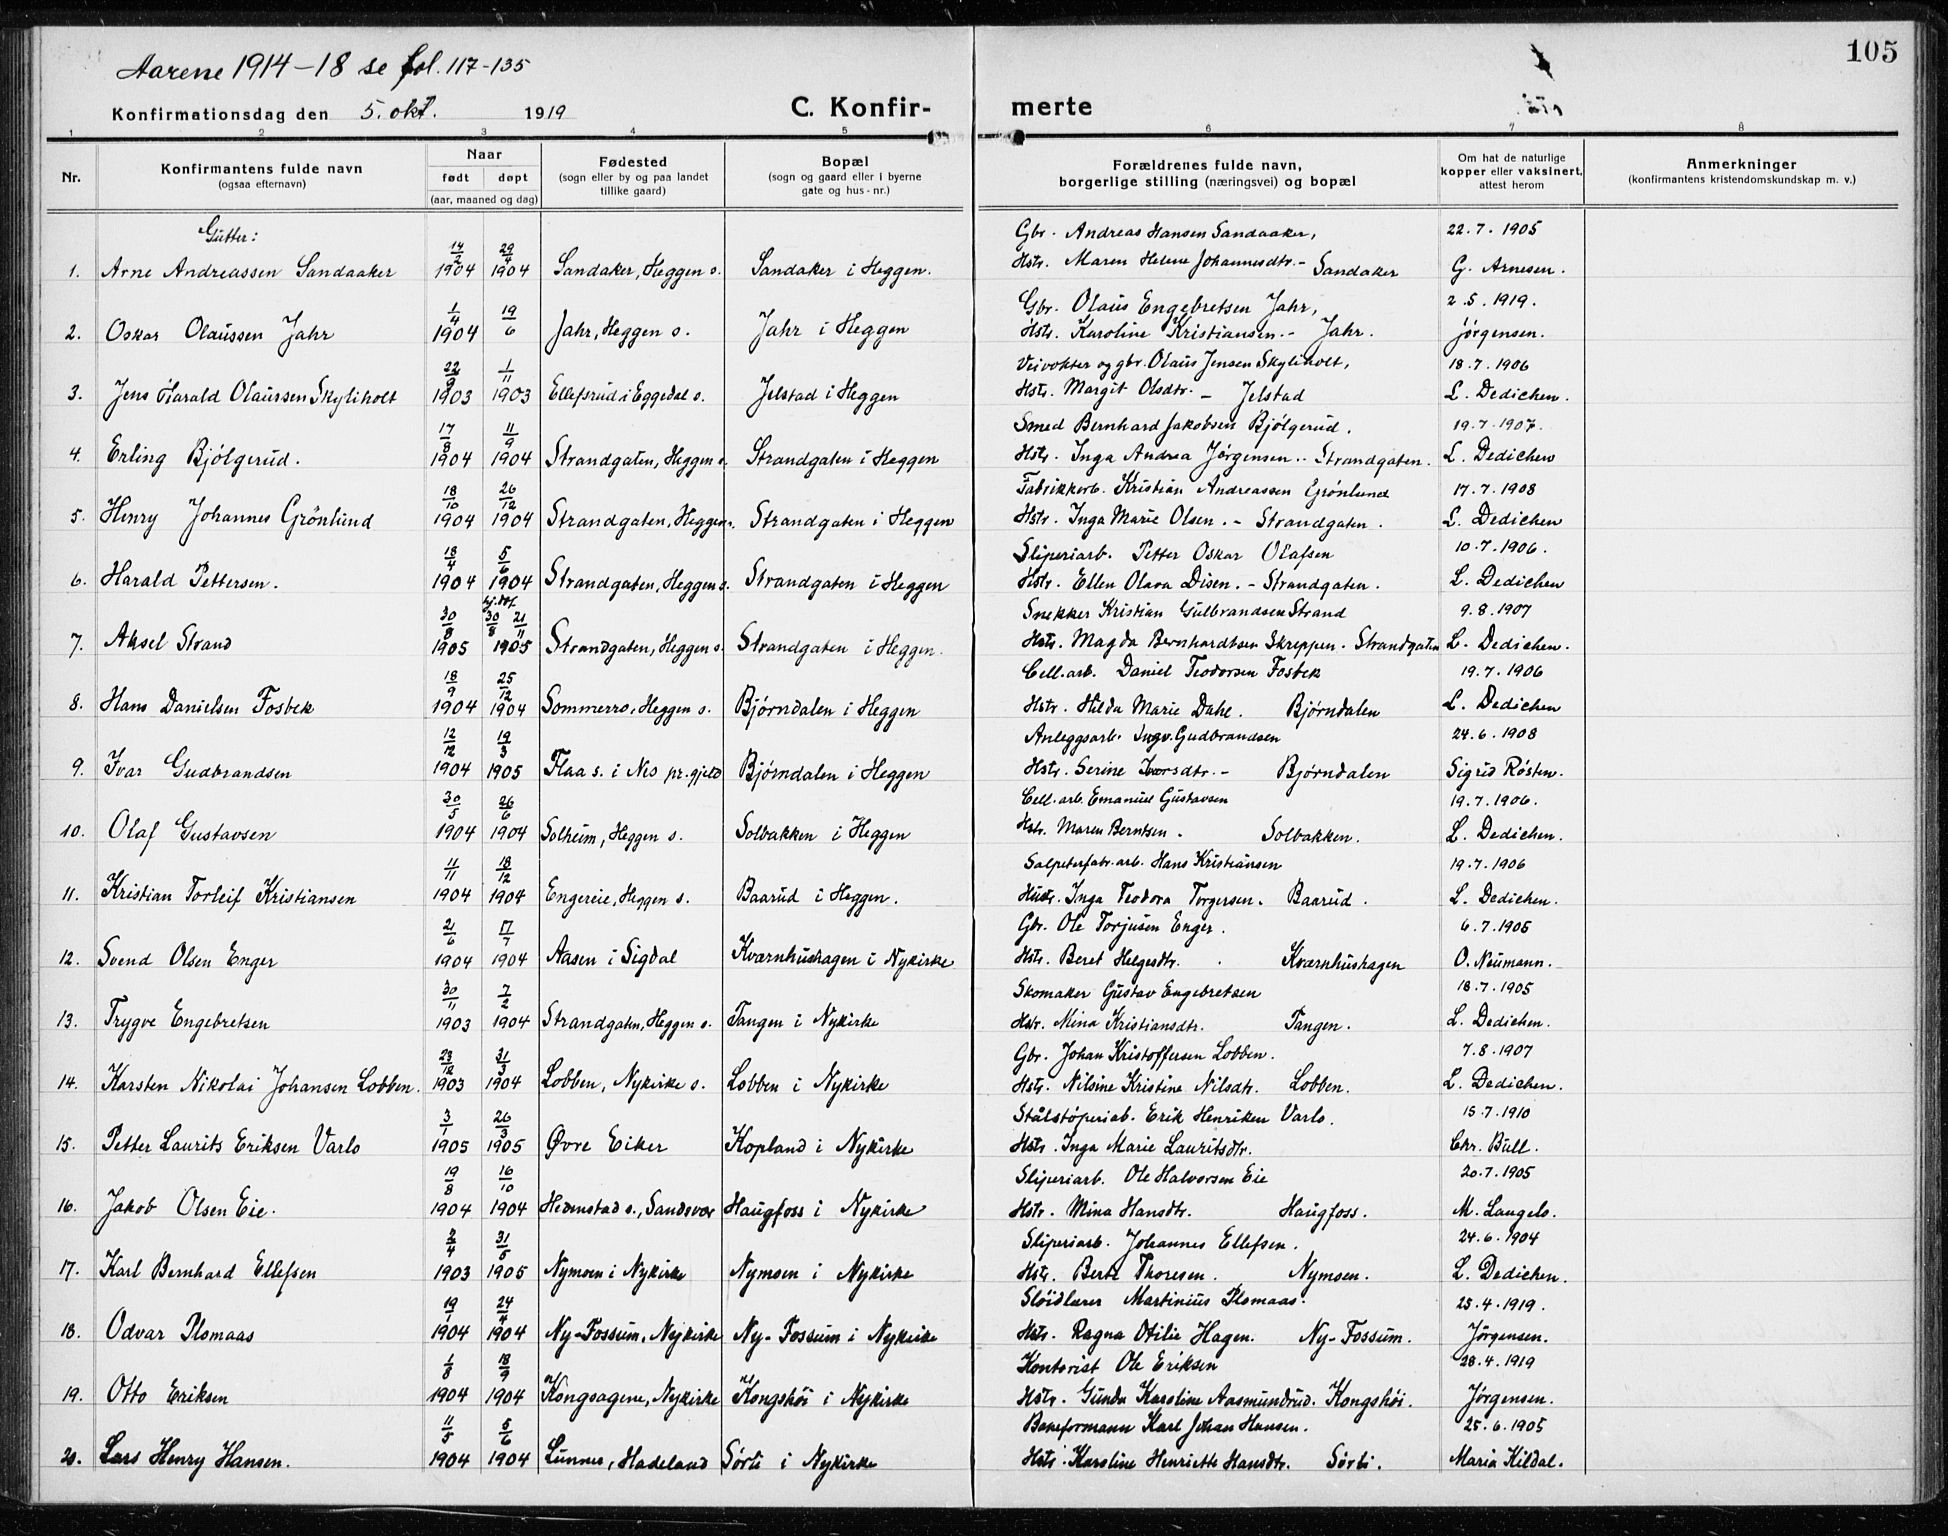 105
Aarene 1914-18 se fol. 117-135
Konfirmationsdag den 5. okt. 1919 C. Konfir- merte
1 2 3 4 5 6 7 8
Nr. Konfirmantens fulde navn (ogsaa efternavn) Naar født døpt (aar, maaned og dag) Fødested (sogn eller by og paa landet tillike gaard) Bopæl (sogn og gaard eller i byerne gate og hus-nr.) Forældrenes fulde navn, borgerlige stilling (næringsvei) og bopæl Om hat de naturlige kopper eller vaksinert, attest herom Anmerkninger (konfirmantens kristendomskundskap m. v.)
Gutter:
14/2 29/4 Gbr. Andreas Hansen Sandaaker, 22.7.1905
1. Arne Andreassen Sandaaker 1904 1904 Sandaker, Heggen s. Sandaker i Heggen. Hstr. Maren Helene Johannesdtr. - Sandaker G. Arnesen.
1/4 19/6 Gbr. Olaus Engebretsen Jahr, 2.5.1919.
2. Oskar Olaussen Jahr 1904 Jahr, Heggen s. Jahr i Heggen Hstr. Karoline Kristiansen. - Jahr. Jørgensen.
22/9 1/11 Veivokter og gbr. Olaus Jensen Skyliholt, 18.7.1906
3. Jens Harald Olaussen Skyliholt 1903 1903 Ellefsrud i Eggedal s. Jelstad i Heggen Hstr. Margit Olsdtr. - Jelstad L. Dedichen.
17/8 11/9 Smed Bernhard Jakobsen Bjølgerud. 19.7.1907.
4. Erling Bjølgerud. 1904 1904 Strandgaten, Heggen s. Strandgaten i Heggen Hstr. Inga Andrea Jørgensen.. Strandgaten. L. Dedichen
18/10 26/12 Fabrikkarb. Kristian Andreassen Grønlund 17.7.1908
5. Henry Johannes Grønlund 1904 1904 Strandgaten, Heggen s. Strandgaten i Heggen Hstr. Inga Marie Olsen. - Strandgaten. L. Dedichen
18/4 5/6 Sliperiarb. Petter Oskar Olafsen 10.7.1906.
6. Harald Pettersen. 1904 1904 Strandgaten, Heggen s. Strandgaten i Heggen Hstr. Ellen Olava Disen. - Strandgaten. L. Dedichen
30/8 30/8 21/11 Snekker Kristian Gulbrandsen Strand 9.8.1907
7. Aksel Strand 1905 1905 Strandgaten, Heggen s. Strandgaten i Heggen. Hstr. Magda Bernhardtsen Skreppen. Strandgaten L. Dedichen.
18/9 25/12 Cell.arb. Daniel Teodorsen Fosbek 19.7.1906
8. Hans Danielsen Fosbek 1904 1904 Sommerro, Heggen s. Bjørndalen i Heggen Hstr. Hilda Marie Dahl. Bjørndalen L. Dedichen
12/12 19/3 Anleggsarb. Ingv. Gudbrandsen 24.6.1908
9. Ivar Gudbrandsen 1904 1905 Flaa s. i Nes pr.gjeld Bjørndalen i Heggen Hstr. Serine Iversdtr. - Bjørndalen Sigrid Røsten.
30/5 26/6 Cell.arb. Emanuel Gustavsen 19.7.1906.
10. Olaf Gustavsen 1904 1904 Solheim, Heggen s. Solbakken i Heggen Hstr. Maren Berntsen. Solbakken. L. Dedichen.
11/11 18/12 Salpeterfabr.arb. Hans Kristiansen 19.7.1906
11. Kristian Torleif Kristiansen 1904 1904 Engereie, Heggen s. Baarud i Heggen. Hustr. Inga Teodora Torgersen. Baarud. L. Dedichen.
21/6 17/7 Gbr. Ole Torjusen Enger. 6.7.1905
12. Svend Olsen Enger 1904 1904 Aasen i Sigdal Kværnhushagen i Nykirke Hstr. Beret Helgesdtr. Kværnhushagen O. Neumann.
30/11 7/2 Skomaker Gustav Engebretsen 18.7.1905
13. Trygve Engebretsen 1903 1904 Strandgaten, Heggen s. Tangen i Nykirke Hstr. Mina Kristiansdtr. Tangen. L. Dedichen.
23/12 31/3 Gbr. Johan Kristoffersen Lobben. 7.8.1907
14. Karsten Nikolai Johansen Lobben. 1903 1904 Lobben, Nykirke s. Lobben i Nykirke Hstr. Nilsine Kristine Nilsdtr. Lobben. L. Dedichen.
3/1 26/3 Stålstøperiab. Erik Henriken Varlo. 15.7.1910
15. Petter Laurits Eriksen Varlo 1905 1905 Øvre Eiker Kopland i Nykirke Hstr. Inga Marie Lauritsdtr. Chr. Bull.
19/8 16/10 Sliperiarb. Ole Halvorsen Eie 20.7.1905
16. Jakob Olsen Eie. 1904 1904 Hedenstad s., Sandsvær Haugfoss i Nykirke Hstr. Mina Hansdtr. Haugfoss. M. Langelo.
2/4 31/5 Sliperiarb. Johannes Ellefsen. 24.6.1904
17. Karl Bernhard Ellefsen 1903 1905 Nymoen i Nykirke Nymoen i Nykirke Hstr. Berte Thoresen. Nymoen. L. Dedichen.
19/1 24/4 Sløidlærer Martinius Plomaas. 25.4.1919.
18. Odvar Plomaas 1904 1904 Ny-Fossum, Nykirke Ny-Fossum i Nykirke Hstr. Ragna Otilie Hagen. Ny-Fossum. Jørgensen.
1/8 18/9 Kontorist Ole Eriksen 28.4.1919
19. Otto Eriksen 1904 1904 Kongsagene, Nykirke Kongshøi i Nykirke Hstr. Gunda Karoline Aasmundrud. Kongshøi. Jørgensen.
11/5 5/6 Baneformann Karl Johan Hansen. 25.6.1905
20. Lars Henry Hansen. 1904 1904 Lunner, Hadeland Sørbi i Nykirke Hstr. Karoline Henriette Hansdtr. Sørbi. Maria Kildal.